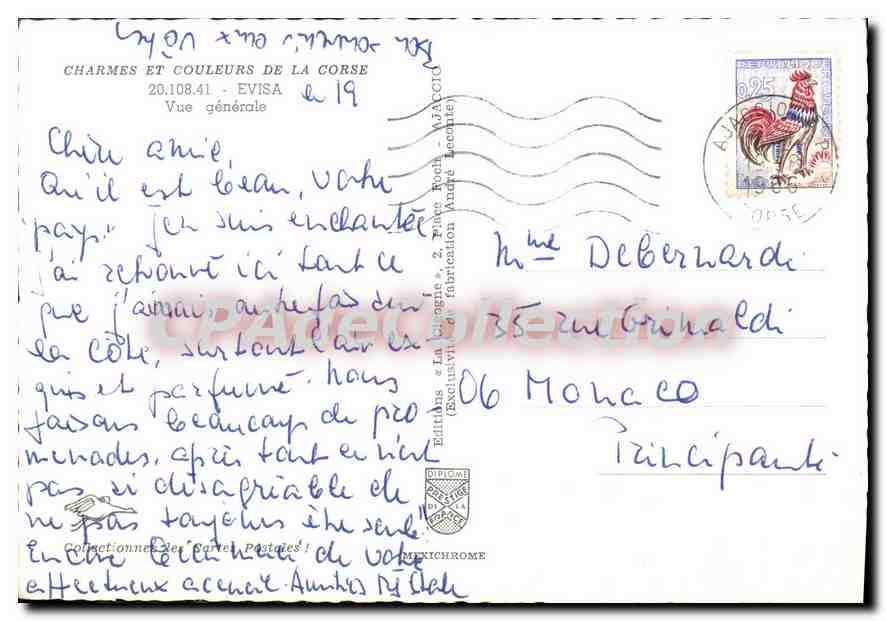 Bon souvenir aux vôtres
CHARMES ET COULEURS DE LA CORSE
20.108.41 - EVISA
Vue générale
le 19
Chère amie,
Qu'il est beau, votre
pays" J'en suis enchantée
j'ai retrouvé ici tout ce
que j'aimais autrefois sur
la côte, surtout l'air ex-
quis et parfumé. Nous
faisons beaucoup de pro-
menades, après tout ce n'est
pas si désagréable de
ne pas toujours être seule"
Encore merci de votre
affectueux accueil. Amitiés
Collectionnez les Cartes Postales !
Editions « La Cigogne », 2, Place Foch - AJACCIO
(Exclusivité de fabrication André Leconte)
DIPLOME
PRESTIGE
DE LA
FRANCE
MEXICHROME
0,25
AJACCIO
CORSE
Mme Debernardi
35 rue Grimaldi
06 Monaco
Principauté
CPAdeCollection